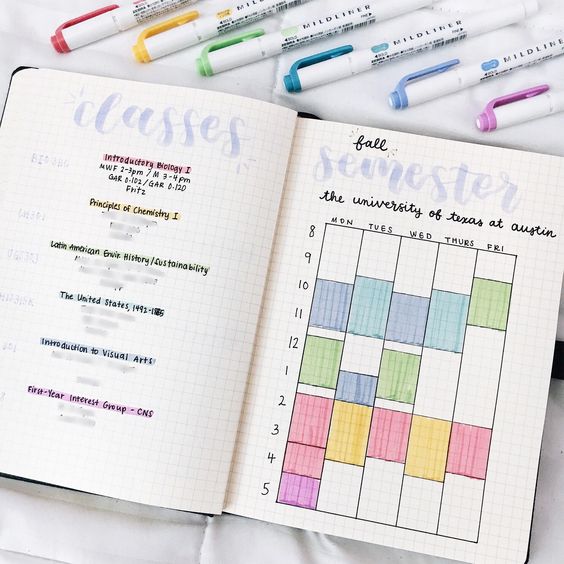 MILDLINER
MILDLINER
MILDLINER
MILDLINER
classes
Introductory Biology I
MWF 2-3pm / M 3-4pm
GAR 0.102 / GAR 0.120
Fritz
Principles of Chemistry I
Latin American Envir. History/Sustainability
The United States, 1492-1865
Introduction to Visual Arts
First-Year Interest Group - CNS
fall
semester
the university of texas at austin
MON TUES WED THURS FRI
8
9
10
11
12
1
2
3
4
5